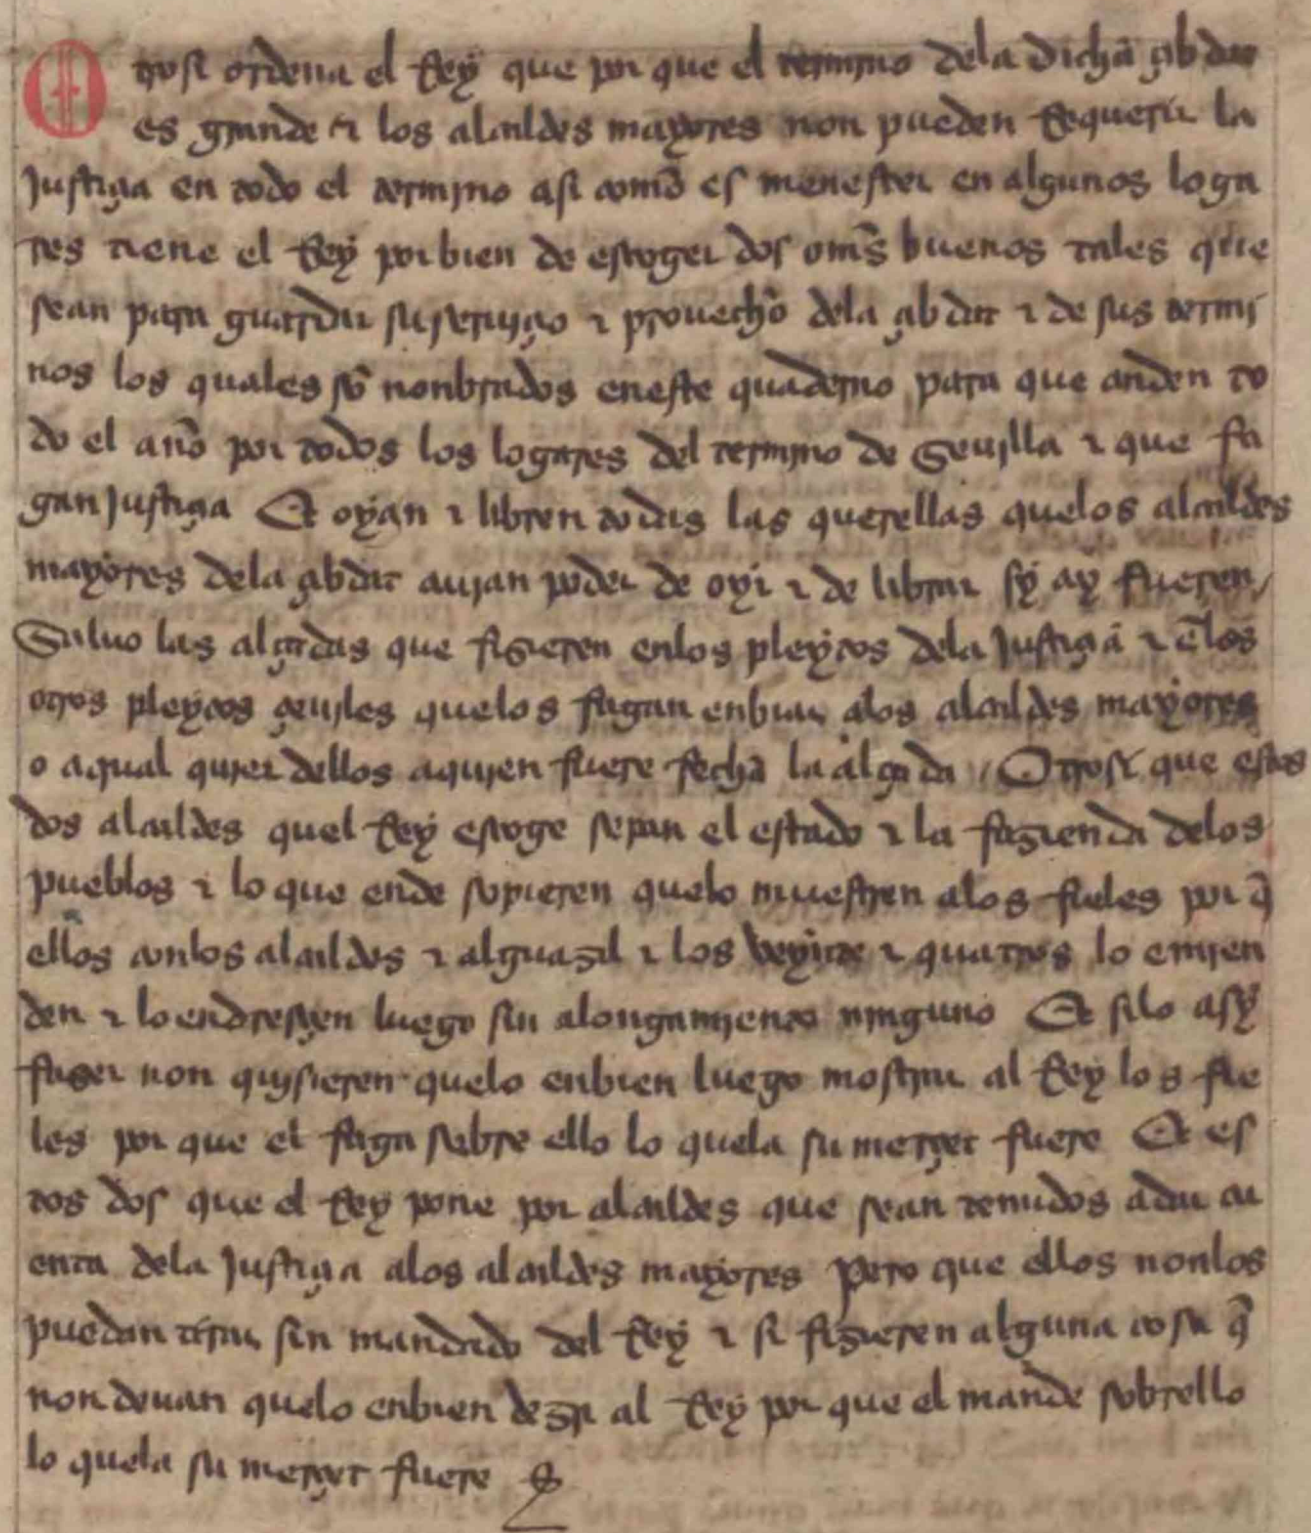 Otrosi ordena el Rey que por que el termjno dela dicha çibdat
es grande ⁊ los alcalldes mayores non pueden Requerir la
Justiçia en todo el termjno asi commo es menester en algunos loga
res tiene el Rey por bien de escoger dos oms̃ buenos tales que
sean para guardar su serujçio ⁊ prouecho dela çibdat ⁊ de sus termj
nos los quales sõ nonbrados eneste quaderno para que anden to
do el año por todos los logares del termjno de Seujlla ⁊ que fa
gan Justiçia Et oyan ⁊ libren todas las querellas quelos alcalldes
mayores dela çibdat aujan poder de oyr ⁊ de librar sy ay fuesen /
Saluo las alçadas que fizieren enlos pleytos dela Justiçia ⁊ ẽlos
otros pleytos çeujles quelos fagan enbiar alos alcalldes mayores
o aqual qujer dellos aqujen fuere fecha la alçada // Otrosi que estos
dos alcalldes quel Rey escoge sepan el estado ⁊ la fazienda delos
pueblos ⁊ lo que ende sopieren quelo muestren alos fieles por q̃
ellos conlos alcalldes ⁊ alguazil ⁊ los veynte ⁊ quatros lo emjen
den ⁊ lo endresçen luego sin alongamjento njnguno Et silo asy
fazer non qujsieren quelo enbien luego mostrar al Rey los fie
les por que el faga sobre ello lo quela su merçet fuere Et es
tos dos que el Rey pone por alcalldes que sean tenudos a dar cu
enta dela Justiçia alos alcalldes mayores pero que ellos nonlos
puedan tirar sin mandado del Rey ⁊ si fizieren alguna cosa q̃
non deuan quelo enbien dezir al Rey por que el mande sobrello
lo quela su merçet fuere